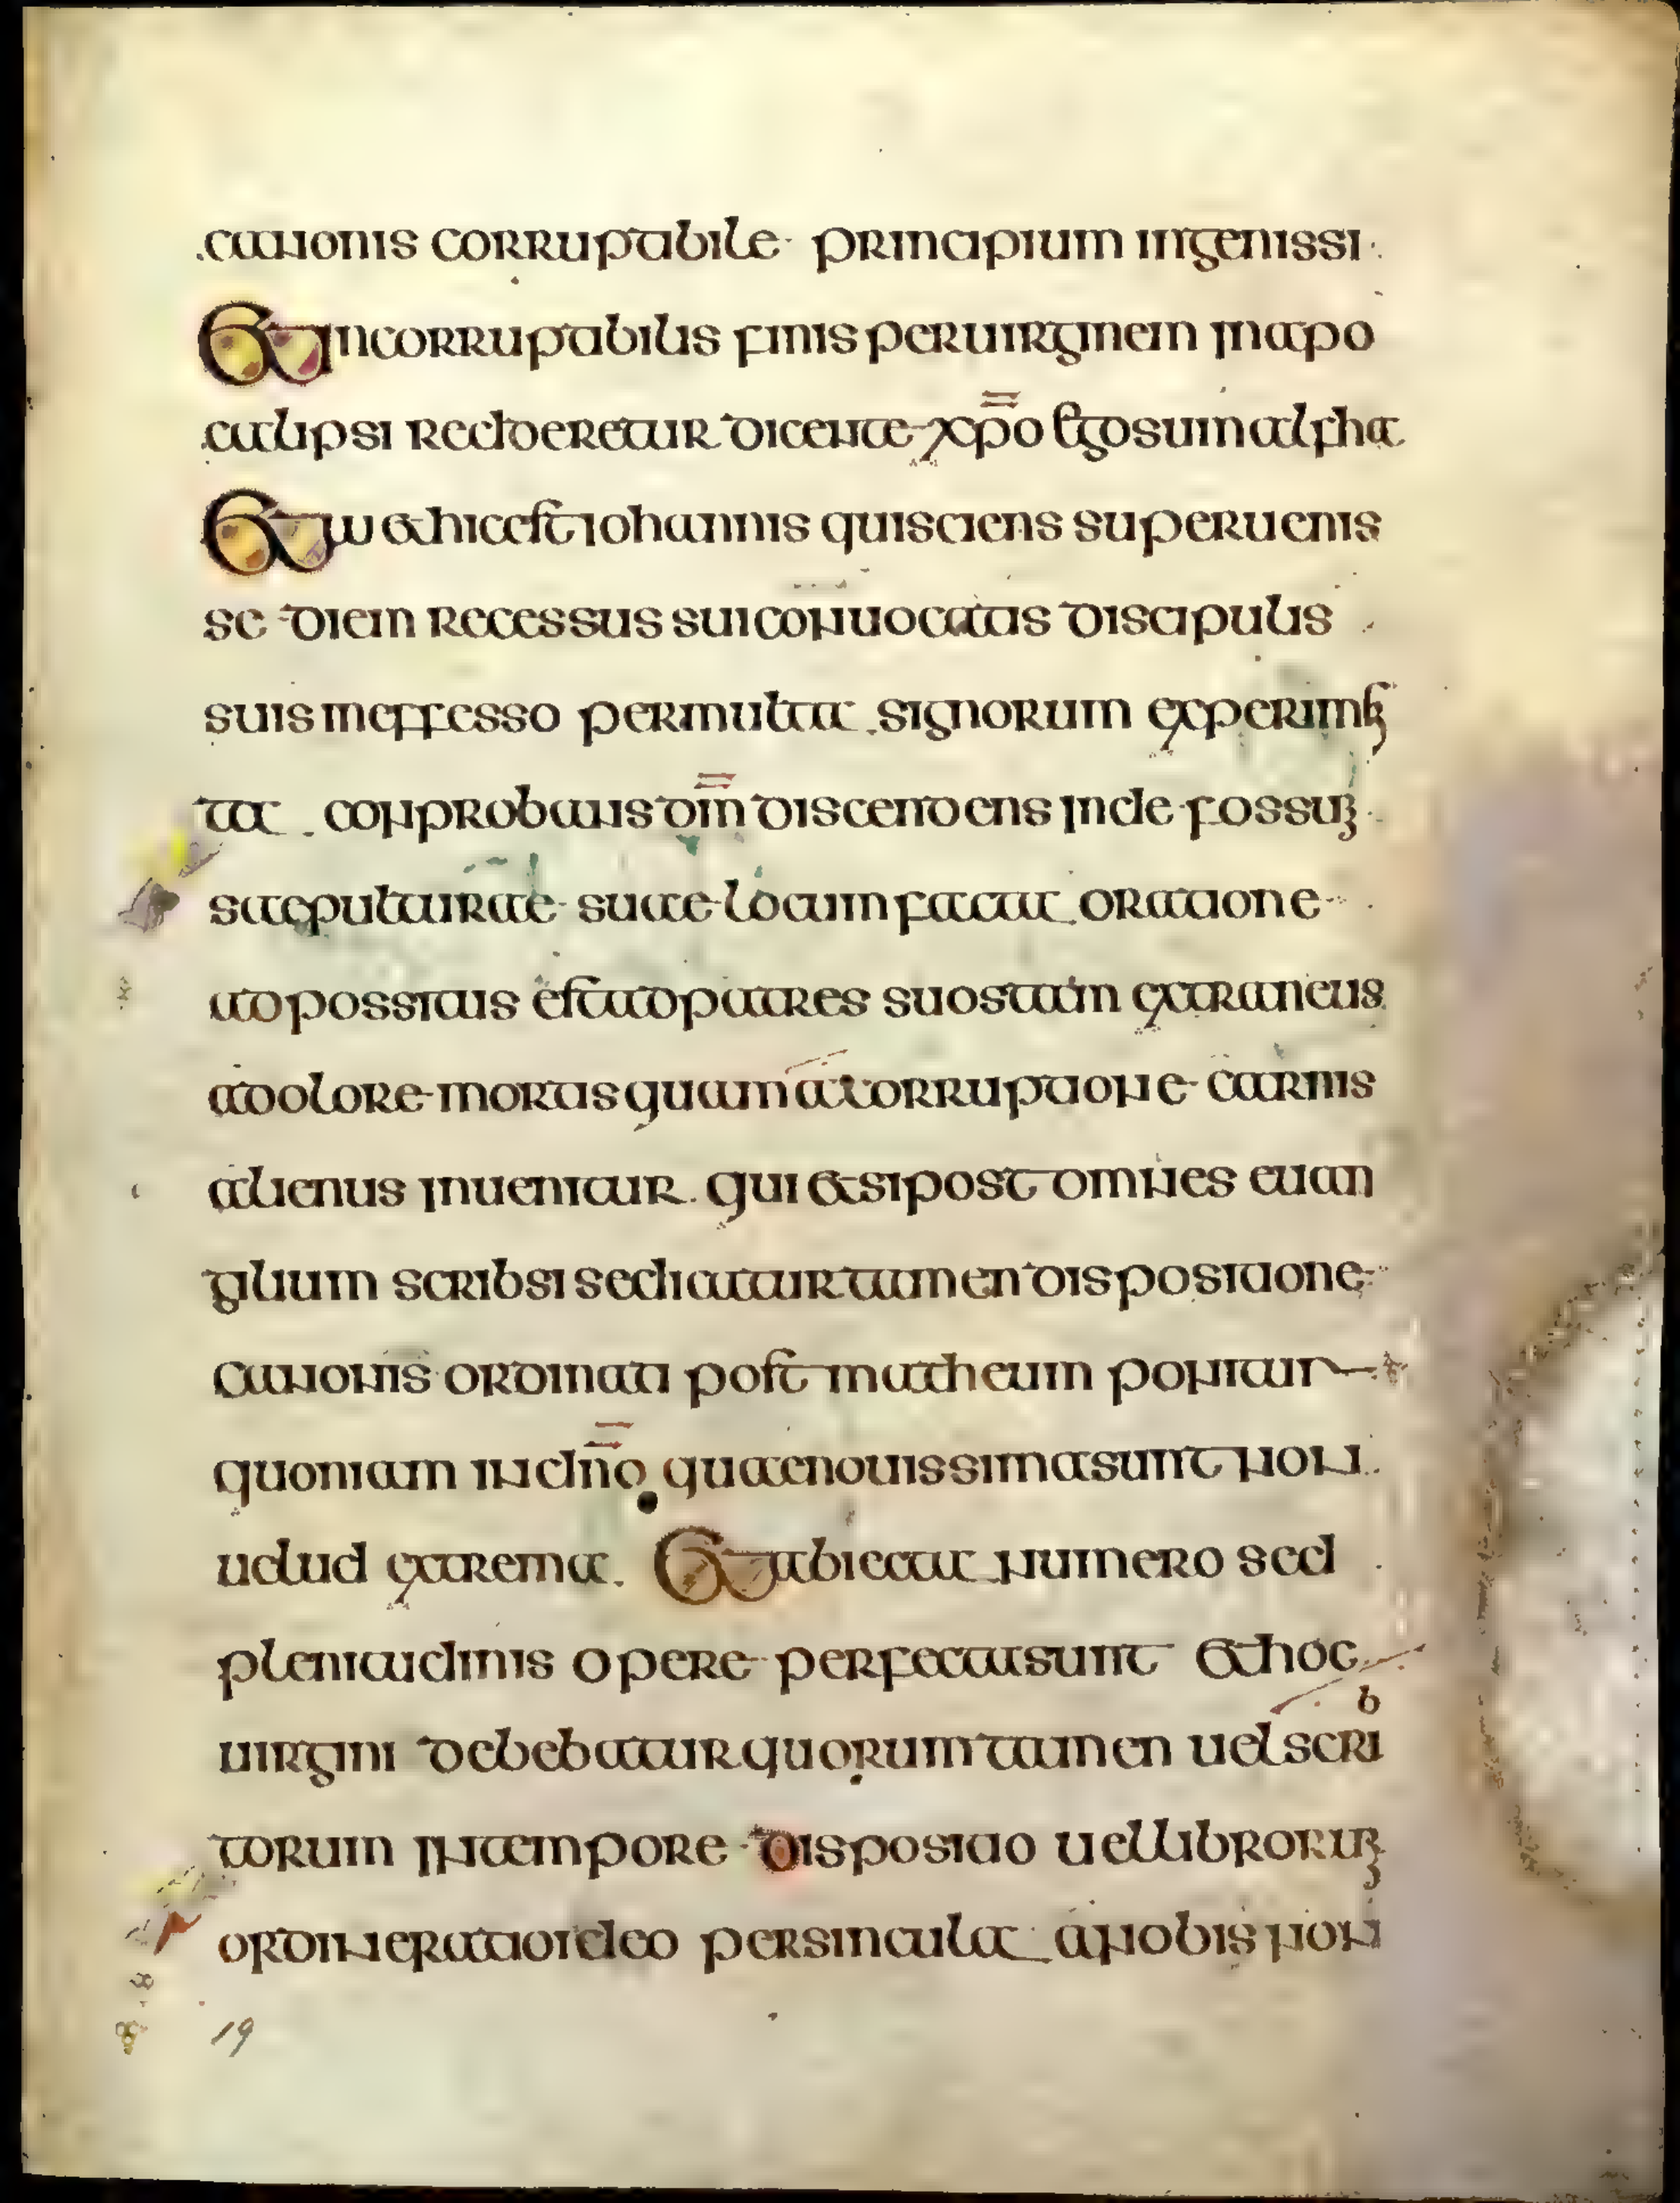 canonis corruptabile principium ingenissi
Et incorruptabilis finis peruirginem inapo
calipsi redderetur dicente xp̄o Ego sum alpha
Et ω & hicest iohannis qui sciens superuenis
se diem recessus sui conuocatis discipulis
suis ineffesso per multa signorum experimen
ta . conprobans dm̄ discendens inde fossum
saepulturae suae locum facta oratione
adpossitus est ad patres suos tam extraneus
adolore mortis quam a corruptione carnis
alienus inuenitur . qui & si post omnes euan
gilium scribsi sed hatatur tamen dispositione
canonis ordinati post matheum ponitur
quoniam in dn̄o quae nouissima sunt non
uelud extrema . Et abiecta numero sed
plenitudinis opere perfecta sunt & hoc
uirgini debebatur quorum tamen uel scrib
torum in tempore dispositio uel librorum
ordine ratio ideo persincula anobis non
19